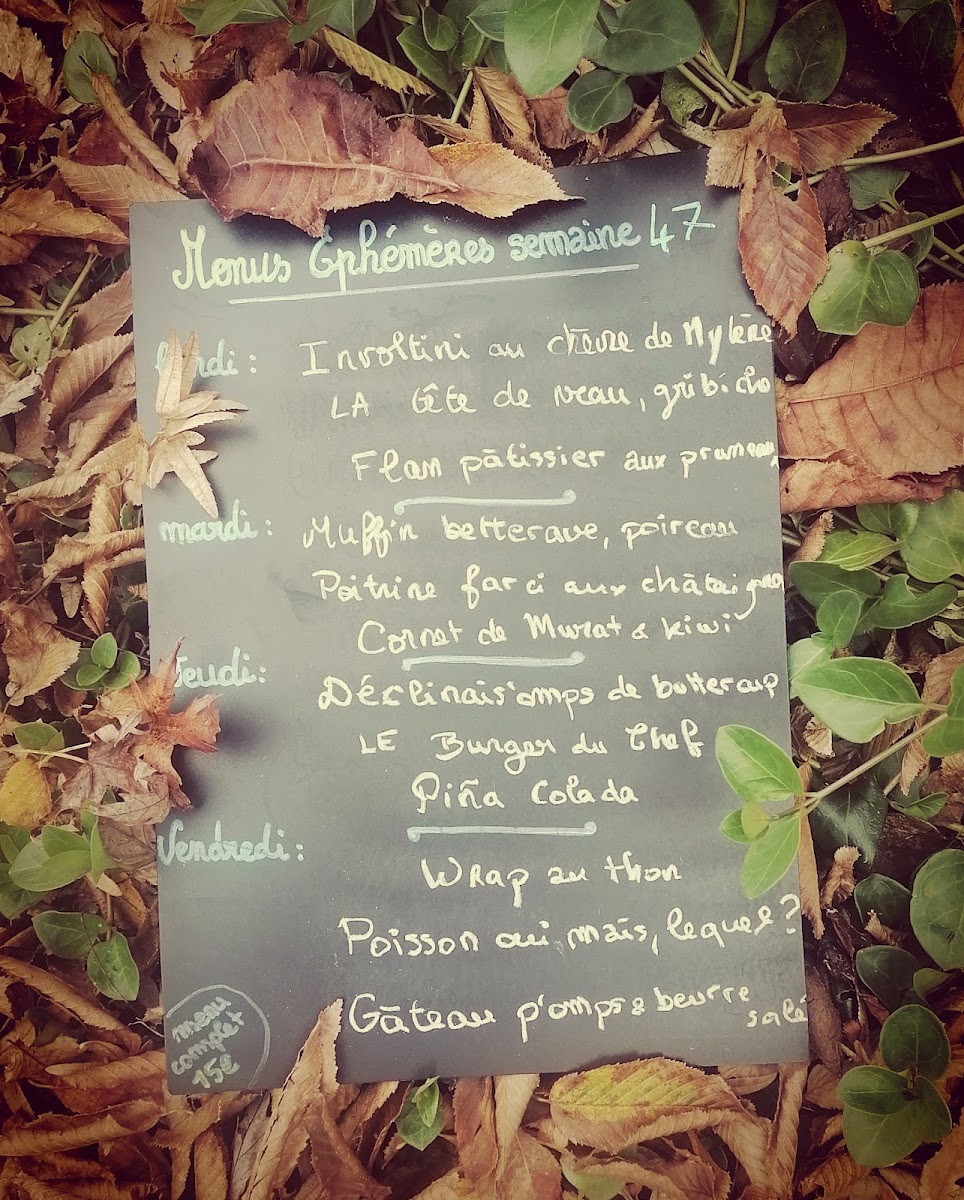 Menus Éphémères semaine 47
lundi : Involtini au chèvre de Mylène
LA tête de veau, gribiche
Flan pâtissier aux pruneaux
mardi : Muffin betterave, poireau
Poitrine farci aux châtaignes
Cornet de Murat & kiwi
Jeudi : Déclinais'omps de butternut
LE Burger du Chef
Piña Colada
Vendredi :
Wrap au thon
Poisson oui, mais, lequel ?
Gâteau p'omps & beurre
salé
menu
complet
15€